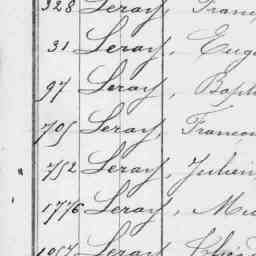 328 Leray, Franç
31 Leray, Eug
97 Leray, Bapti
705 Leray, Françoi
752 Leray, Julien
1776 Leray, Mu
1057 Leray,